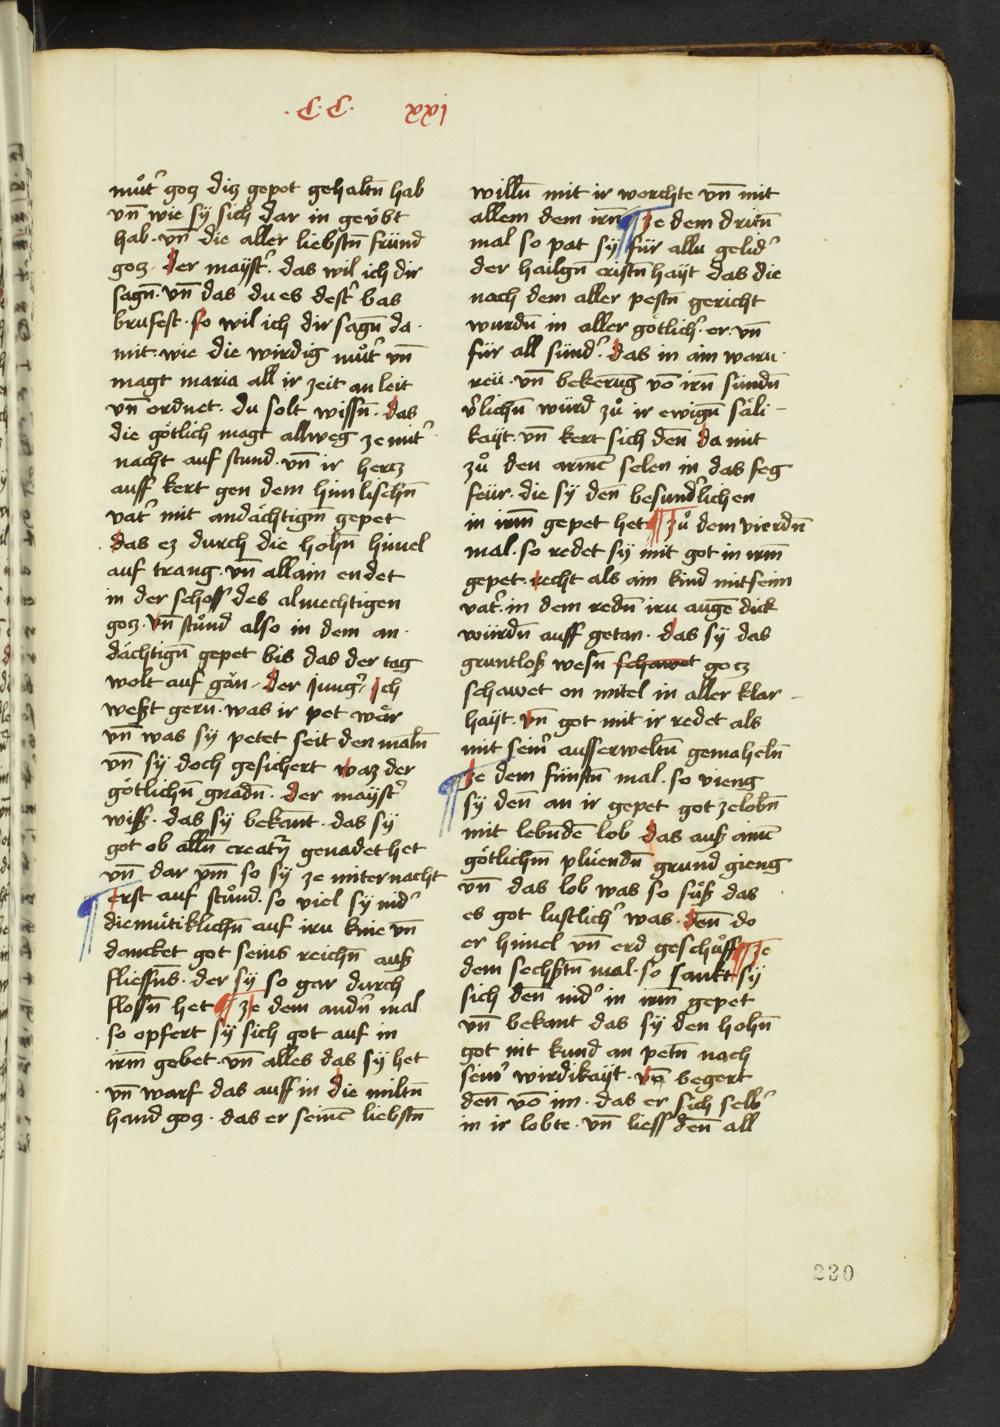 ·C·C· xxxi
můtˀ gocz dicz gepot gehaltn̄ hab
vn̄ wie sÿ sich dar in geůbt
hab· vn̄ die aller liebstn̄ fründ
gocz· der maÿstˀ· das wil ich dir
sagn̄· vn̄ das du es destˀ bas
brufest· so wil ich dir sagn̄ da·
mit· wie die wirdig můtˀ vn̄
magt maria all ir zeit an leit
vn̄ ordnet· du solt wissn̄· das
die götlich magt allweg ze mitˀ
nacht auf stund· vn̄ ir hertz
auff kert gen dem himlischn̄
vatˀ mit andächtigm̄ gepet
das ez durch die hohn̄ himel
auf trang· vn̄ allain endet
in der schoss des almechtigen
gocz· vn̄ stůnd also in dem an·
dächtign̄ gepet bis das der tag
wolt auf gän· der jungˀ· Ich
weßt gern̄· was ir pet wär
vn̄ was sÿ petet seit den maln̄
vn̄ sÿ doch gesichert waz der
götlichn̄ gnadn̄· der maÿstˀ
wiß· das sÿ bekant· das sÿ
got ob alln̄ creatˀ genadet het
vn̄ dar vm̄ so sÿ ze miternacht
¶ erst auf stůnd· so viel sÿ nidˀ
diemůtiklichn̄ auf irn knie vn̄
dancket got seins reichn̄ auß
fliessn̄s· der sÿ so gar durch
flossn̄ het ¶ ze dem andn̄ mal
so opfert sÿ sich got auf in
irm̄ gebet· vn̄ alles das sÿ het
vn̄ warf das auff in die miltn̄
hand gocz· das er seinē liebstn̄
willn̄ mit ir worchte vn̄ mit
allem dem irn̄ ¶ ze dem dritn̄
mal so pat sÿ für alln gelidˀ
der hailgn̄ cristn̄hayt das die
nach dem aller pestn̄ gericht
wurdn̄ in aller götlichˀ er· vn̄
für all sündˀ· das in ain warn·
reü· vn̄ bekerūg vō irn̄ sündn̄
vˀlichn̄ würd zů ir ewign̄ säli-
kayt· vn̄ kert sich den̄ da mit
zů den armē selen in das feg
feür· die sÿ den̄ besundˀlichen
in irm̄ gepet het ¶ zů dem vierdn̄
mal· so redet sÿ mit got in irm̄
gepet· recht als ain kind mit seim
vatˀ· in dem redn̄ irn augē dick
würdn̄ auff getan· das sÿ das
gruntloß wesn̄ schawet gocz
schawet on mitel in aller klar-
hayt· vn̄ got mit ir redet als
mit seinˀ ausserweltn̄ gemaheln̄
¶ ze dem fünftn̄ mal· so vieng
sÿ den̄ an ir gepet got ze lobn̄
mit lebndē lob das auß ainē
götlichm̄ plüendn̄ grund gieng
vn̄ das lob was so süß das
es got lustlichˀ was· den̄ do
er himel vn̄ erd geschůff ¶ ze
dem sechßtn̄ mal· so sankt sÿ
sich den̄ nidˀ in irm̄ gepet
vn̄ bekant das sÿ den hohn̄
got nit kund an petn̄ nach
seinˀ wirdikayt· vn̄ begert
den̄ vō im· das er sich selbˀ
in ir lobte· vn̄ liess den̄ all
230